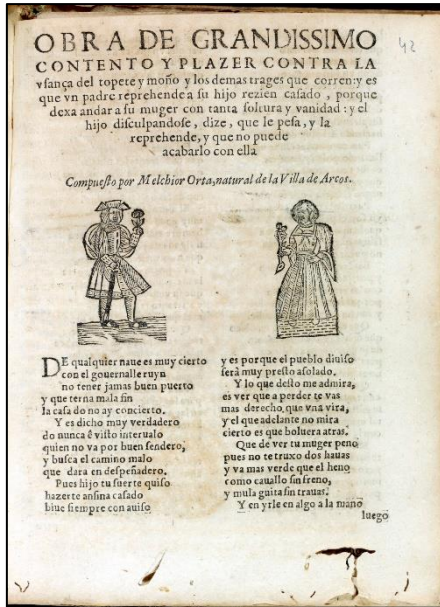 42
OBRA DE GRANDISSIMO
CONTENTO Y PLAZER CONTRA LA
vsança del topete y moño y los demas trages que corren: y es
que vn padre reprehende a su hijo rezien casado, porque
dexa andar a su muger con tanta soltura y vanidad: y el
hijo disculpandose, dize, que le pesa, y la
reprehende, y que no puede
acabarlo con ella
Compuesto por Melchior Orta, natural de la Villa de Arcos.
DE qualquier naue es muy cierto
con el gouernalle ruyn
no tener jamas buen puerto
y que terna mala fin
la casa do no ay concierto.
Y es dicho muy verdadero
do nunca é visto interualo
quien no va por buen sendero,
y busca el camino malo
que dara en despeñadero.
Pues hijo tu suerte quiso
hazerte ansina casado
biue siempre con auiso
y es porque el pueblo diuiso
serà muy presto asolado.
Y lo que desto me admira,
es ver que a perder te vas
mas derecho, que vna vira,
y el que adelante no mira
cierto es que boluera atras.
Que de ver tu muger peno
pues no te truxo dos hauas
y va mas verde que el heno
como cauallo sin freno,
y mula guita sin trauas.
Y en yrle en algo a la mano
luego